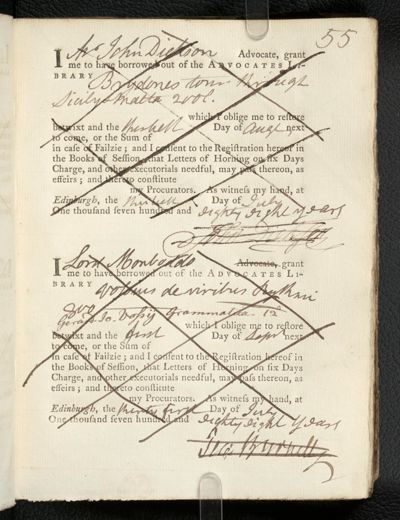 55
I Mr John Dickson Advocate, grant
me to have borrowed out of the ADVOCATES LI-
BRARY Brydones tour through
Sicily & Malta 2 vol.
which I oblige me to reſtore
betwixt and the Day of Augt next
to come, or the Sum of
in caſe of Failzie; and I conſent to the Regiſtration hereof in
the Books of Seſſion, that Letters of Horning on ſix Days
Charge, and other executorials needful, may paſs thereon, as
effeirs; and thereto conſtitute
my Procurators. As witneſs my hand, at
Edinburgh, the Day of July
One thouſand ſeven hundred and eighty eight years
John Dickson
I Lord Monboddo Advocate, grant
me to have borrowed out of the ADVOCATES LI-
BRARY Vossius de viribus Rythmi
Gerard Jo. Vossij Grammatica 12
which I oblige me to reſtore
betwixt and the first Day of Sept next
to come, or the Sum of
in caſe of Failzie; and I conſent to the Regiſtration hereof in
the Books of Seſſion, that Letters of Horning on ſix Days
Charge, and other executorials needful, may paſs thereon, as
effeirs; and thereto conſtitute
my Procurators. As witneſs my hand, at
Edinburgh, the thirty first Day of July
One thouſand ſeven hundred and eighty eight years
Jas Burnett